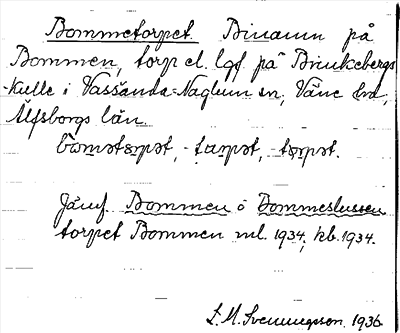 Bommetorpet Binamn på
Bommen, torp el. lgf. på Brinkebergs
-kulle i Vassända-Naglum sn, Väne hd,
Älfsborgs län.
Jämf. Bommen o Bommeslussen
torpet Bommen ml. 1934, kb. 1934.
L. M. Svenungsson 1936